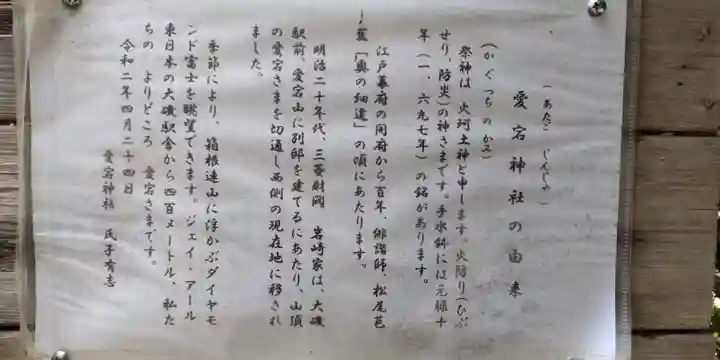 (あたご じんじゃ)
愛宕神社の由来
(かぐつちのかみ)
祭神は 火珂土神と申します。火防り(ひぶ
せり 防災)の神さまです。手水鉢には元禄十
年(一、六九七年)の銘があります。
江戸幕府の開府から百年、俳諧師、松尾芭
蕉「奥の細道」の頃にあたります。
明治二十年代、三菱財閥 岩崎家は、大磯
駅前、愛宕山に別邸を建てるにあたり、山頂
の愛宕さまを切通し西側の現在地に移され
ました。
季節により、箱根連山に浮かぶダイヤモ
ンド富士を眺望できます。ジェイ・アール
東日本の大磯駅舎から四百メートル、私た
ちの よりどころ 愛宕さまです。
令和二年四月二十四日
愛宕神社 氏子有志